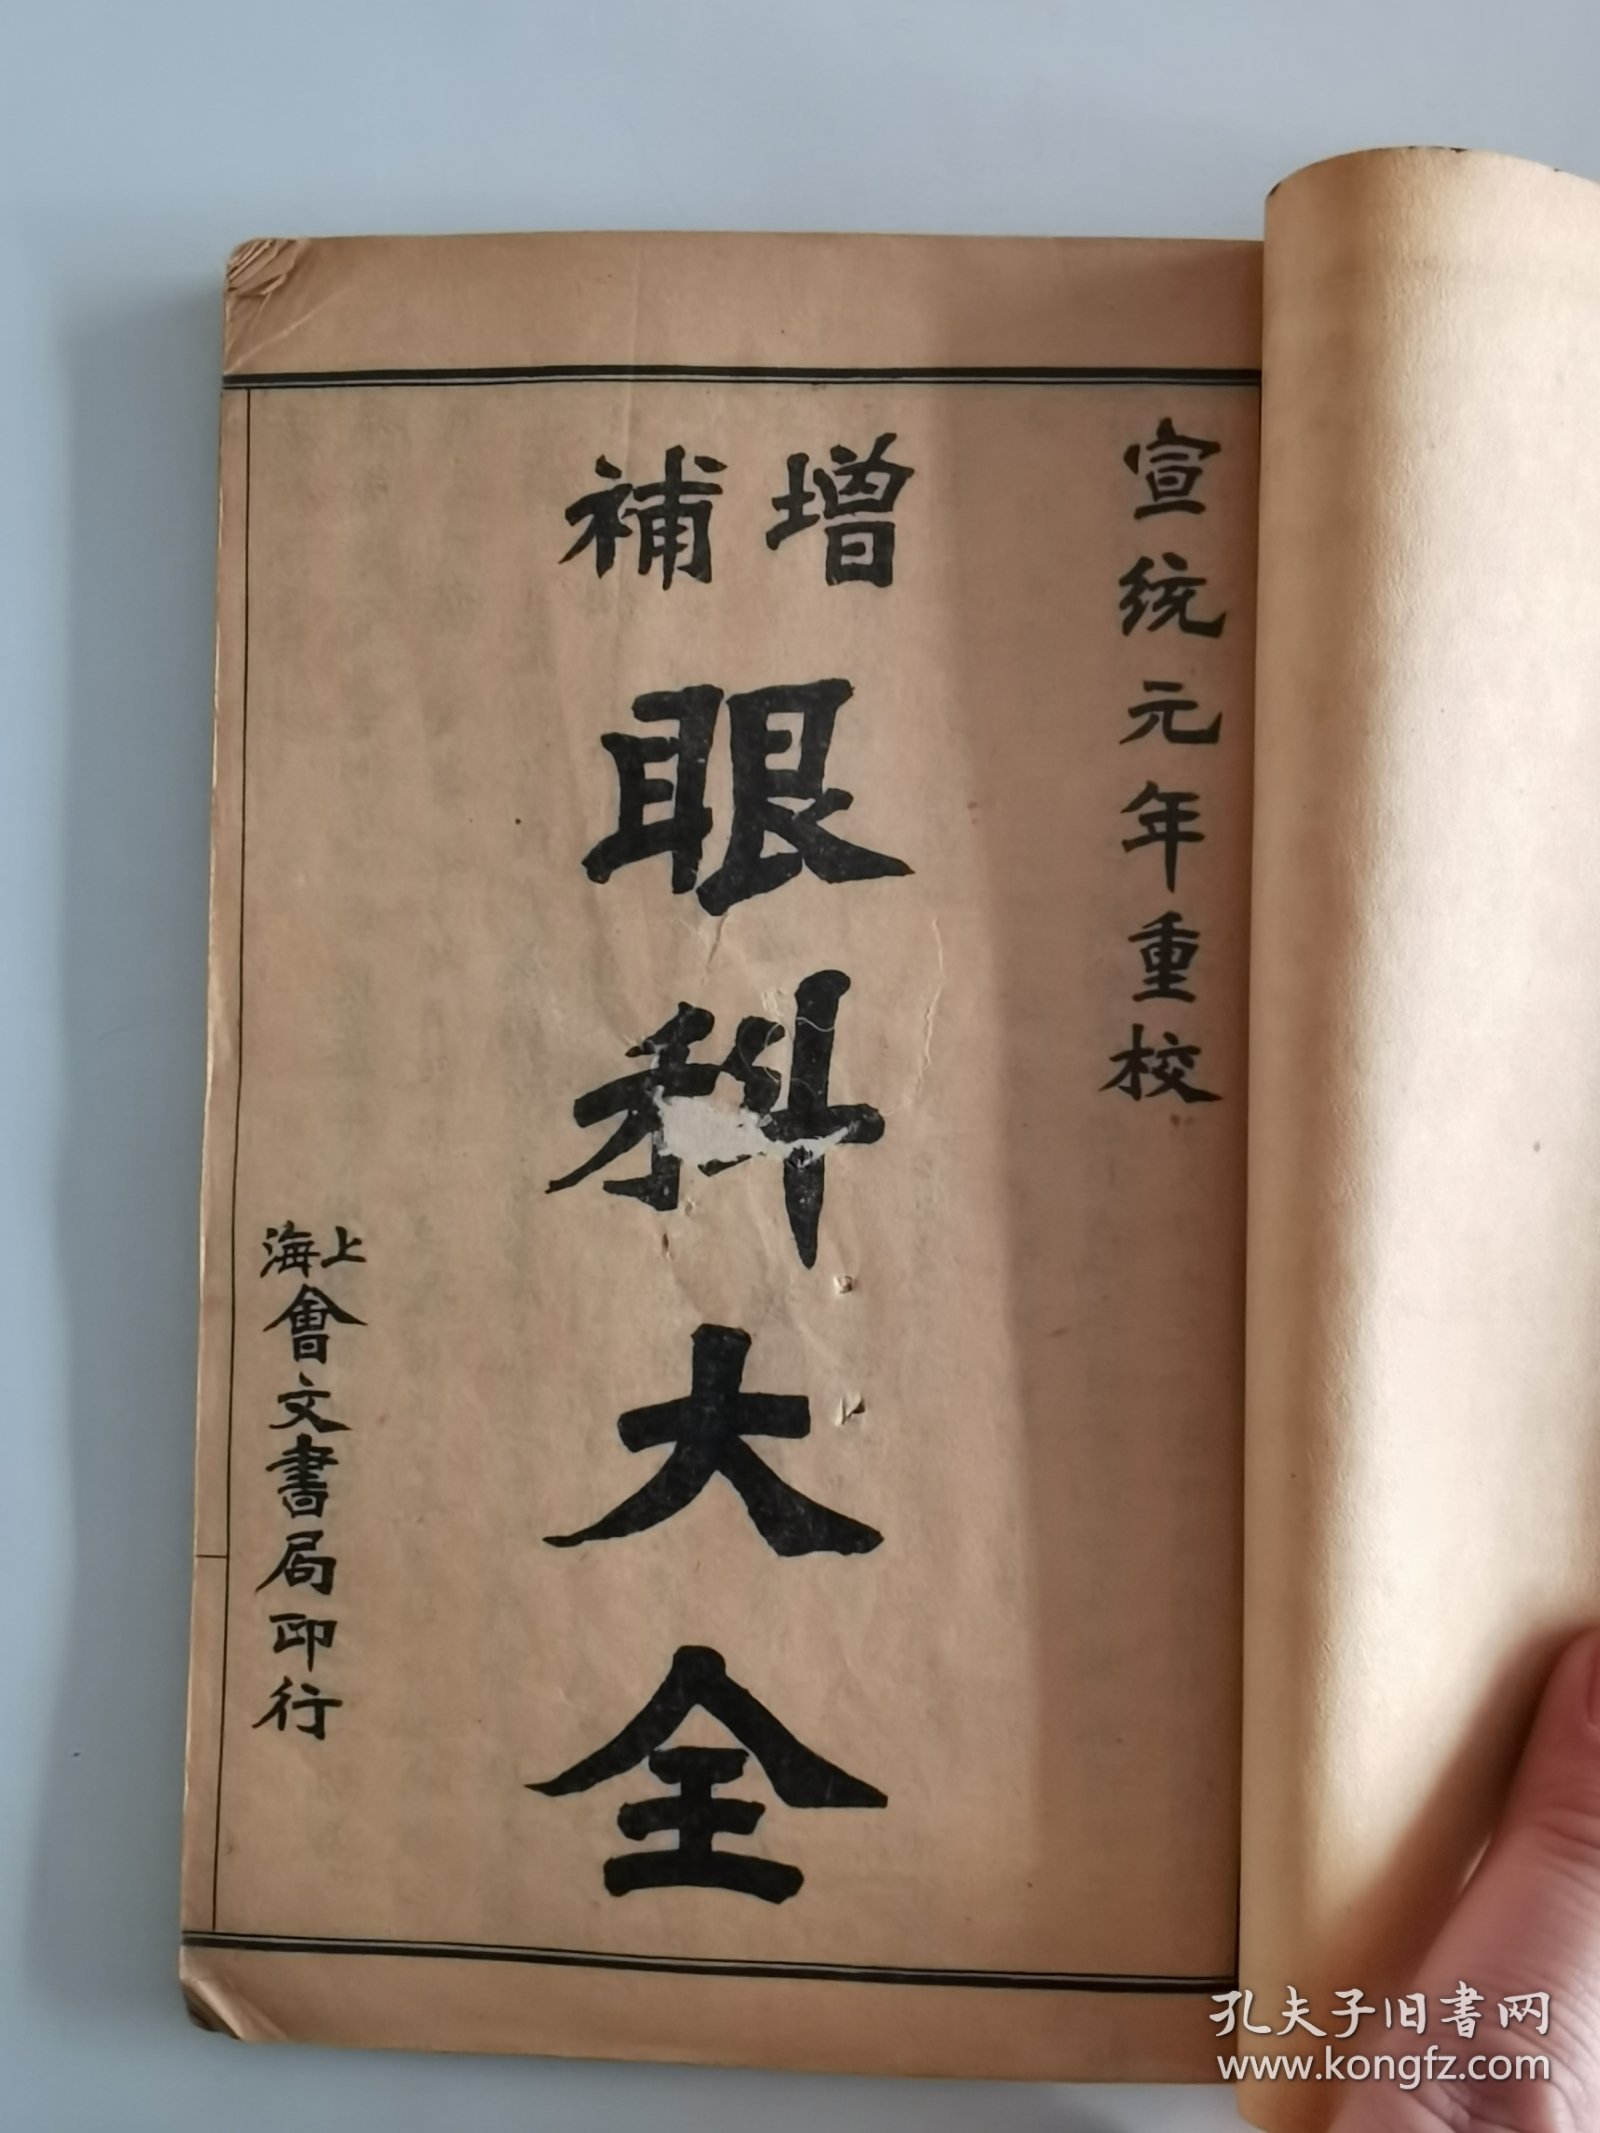 宣統元年重校
增補
眼科大全
上海
會文書局印行
孔夫子旧书网
www.kongfz.com